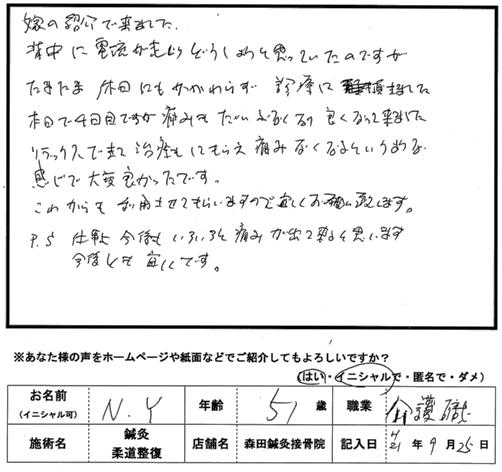 嫁の紹介で来ました.
背中に電流が走りどうしようと思っていたのですが
たまたま 休日にもかかわらず 診療に
本日で4回目ですが痛みも だいぶなくなり 良くなって来ました
リラックスでき 治療も してもらえ 痛みなくなるという
感じで大変良かったです。
これからも 利用させてもらいますので宜しくお願い致します。
P.S 仕事上 今後も いろいろ 痛みが出て来ると思います
今後とも 宜しくです。
※あなた様の声をホームページや紙面などでご紹介してもよろしいですか？
（はい・イニシャルで・匿名で・ダメ）
お名前 （イニシャル可） N.Y 年齢 51 歳 職業 介護職
施術名 鍼灸 柔道整復 店舗名 森田鍼灸接骨院 記入日 H 21 年 9 月 25 日